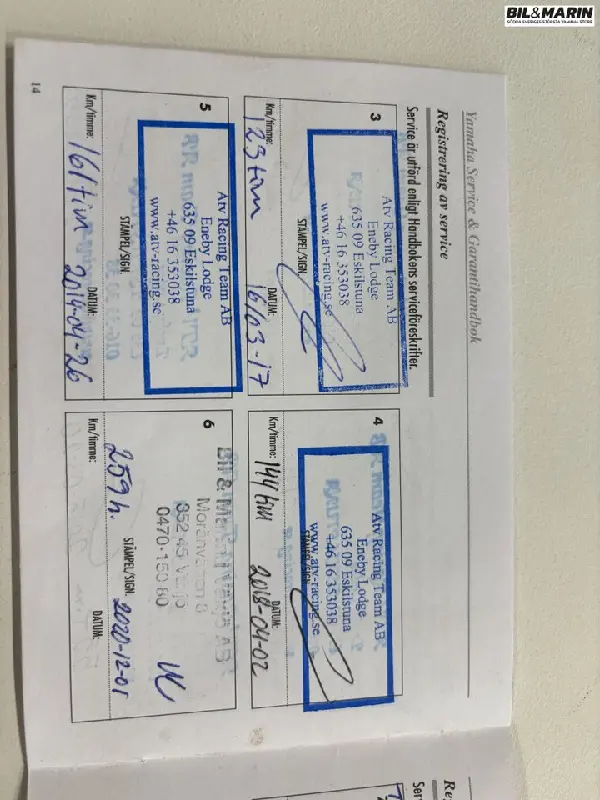 BIL&MARIN
Yamaha Service & Garantihandbok
Registrering av service
Service är utförd enligt Handbokens serviceföreskrifter.
3
Atv Racing Team AB
Eneby Lodge
635 09 Eskilstuna
+46 16 353038
www.atv-racing.se
STÄMPEL/SIGN.
Km/timme:
DATUM:
123 tim 16/03-17
4
Atv Racing Team AB
Eneby Lodge
635 09 Eskilstuna
+46 16 353038
www.atv-racing.se
Km/timme:
DATUM:
144 tim 2018-04-02
5
Atv Racing Team AB
Eneby Lodge
635 09 Eskilstuna
+46 16 353038
www.atv-racing.se
STÄMPEL/SIGN.
Km/timme:
DATUM:
161 tim 2019-04-26
6
Bil & Marin i Växjö AB
352 45 Växjö
0470-150 80
STÄMPEL/SIGN.
Km/timme:
DATUM:
259 h. 2020-12-01
14